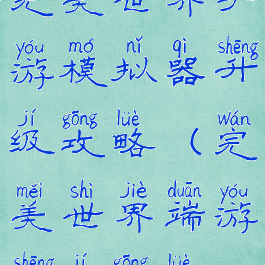 美世界
yóu mó nǐ qì shēng
游模拟器升
jí gōng lüè wán
级攻略（完
měi shì jiè duān yóu
美世界端游
shēng jí gōng lüè